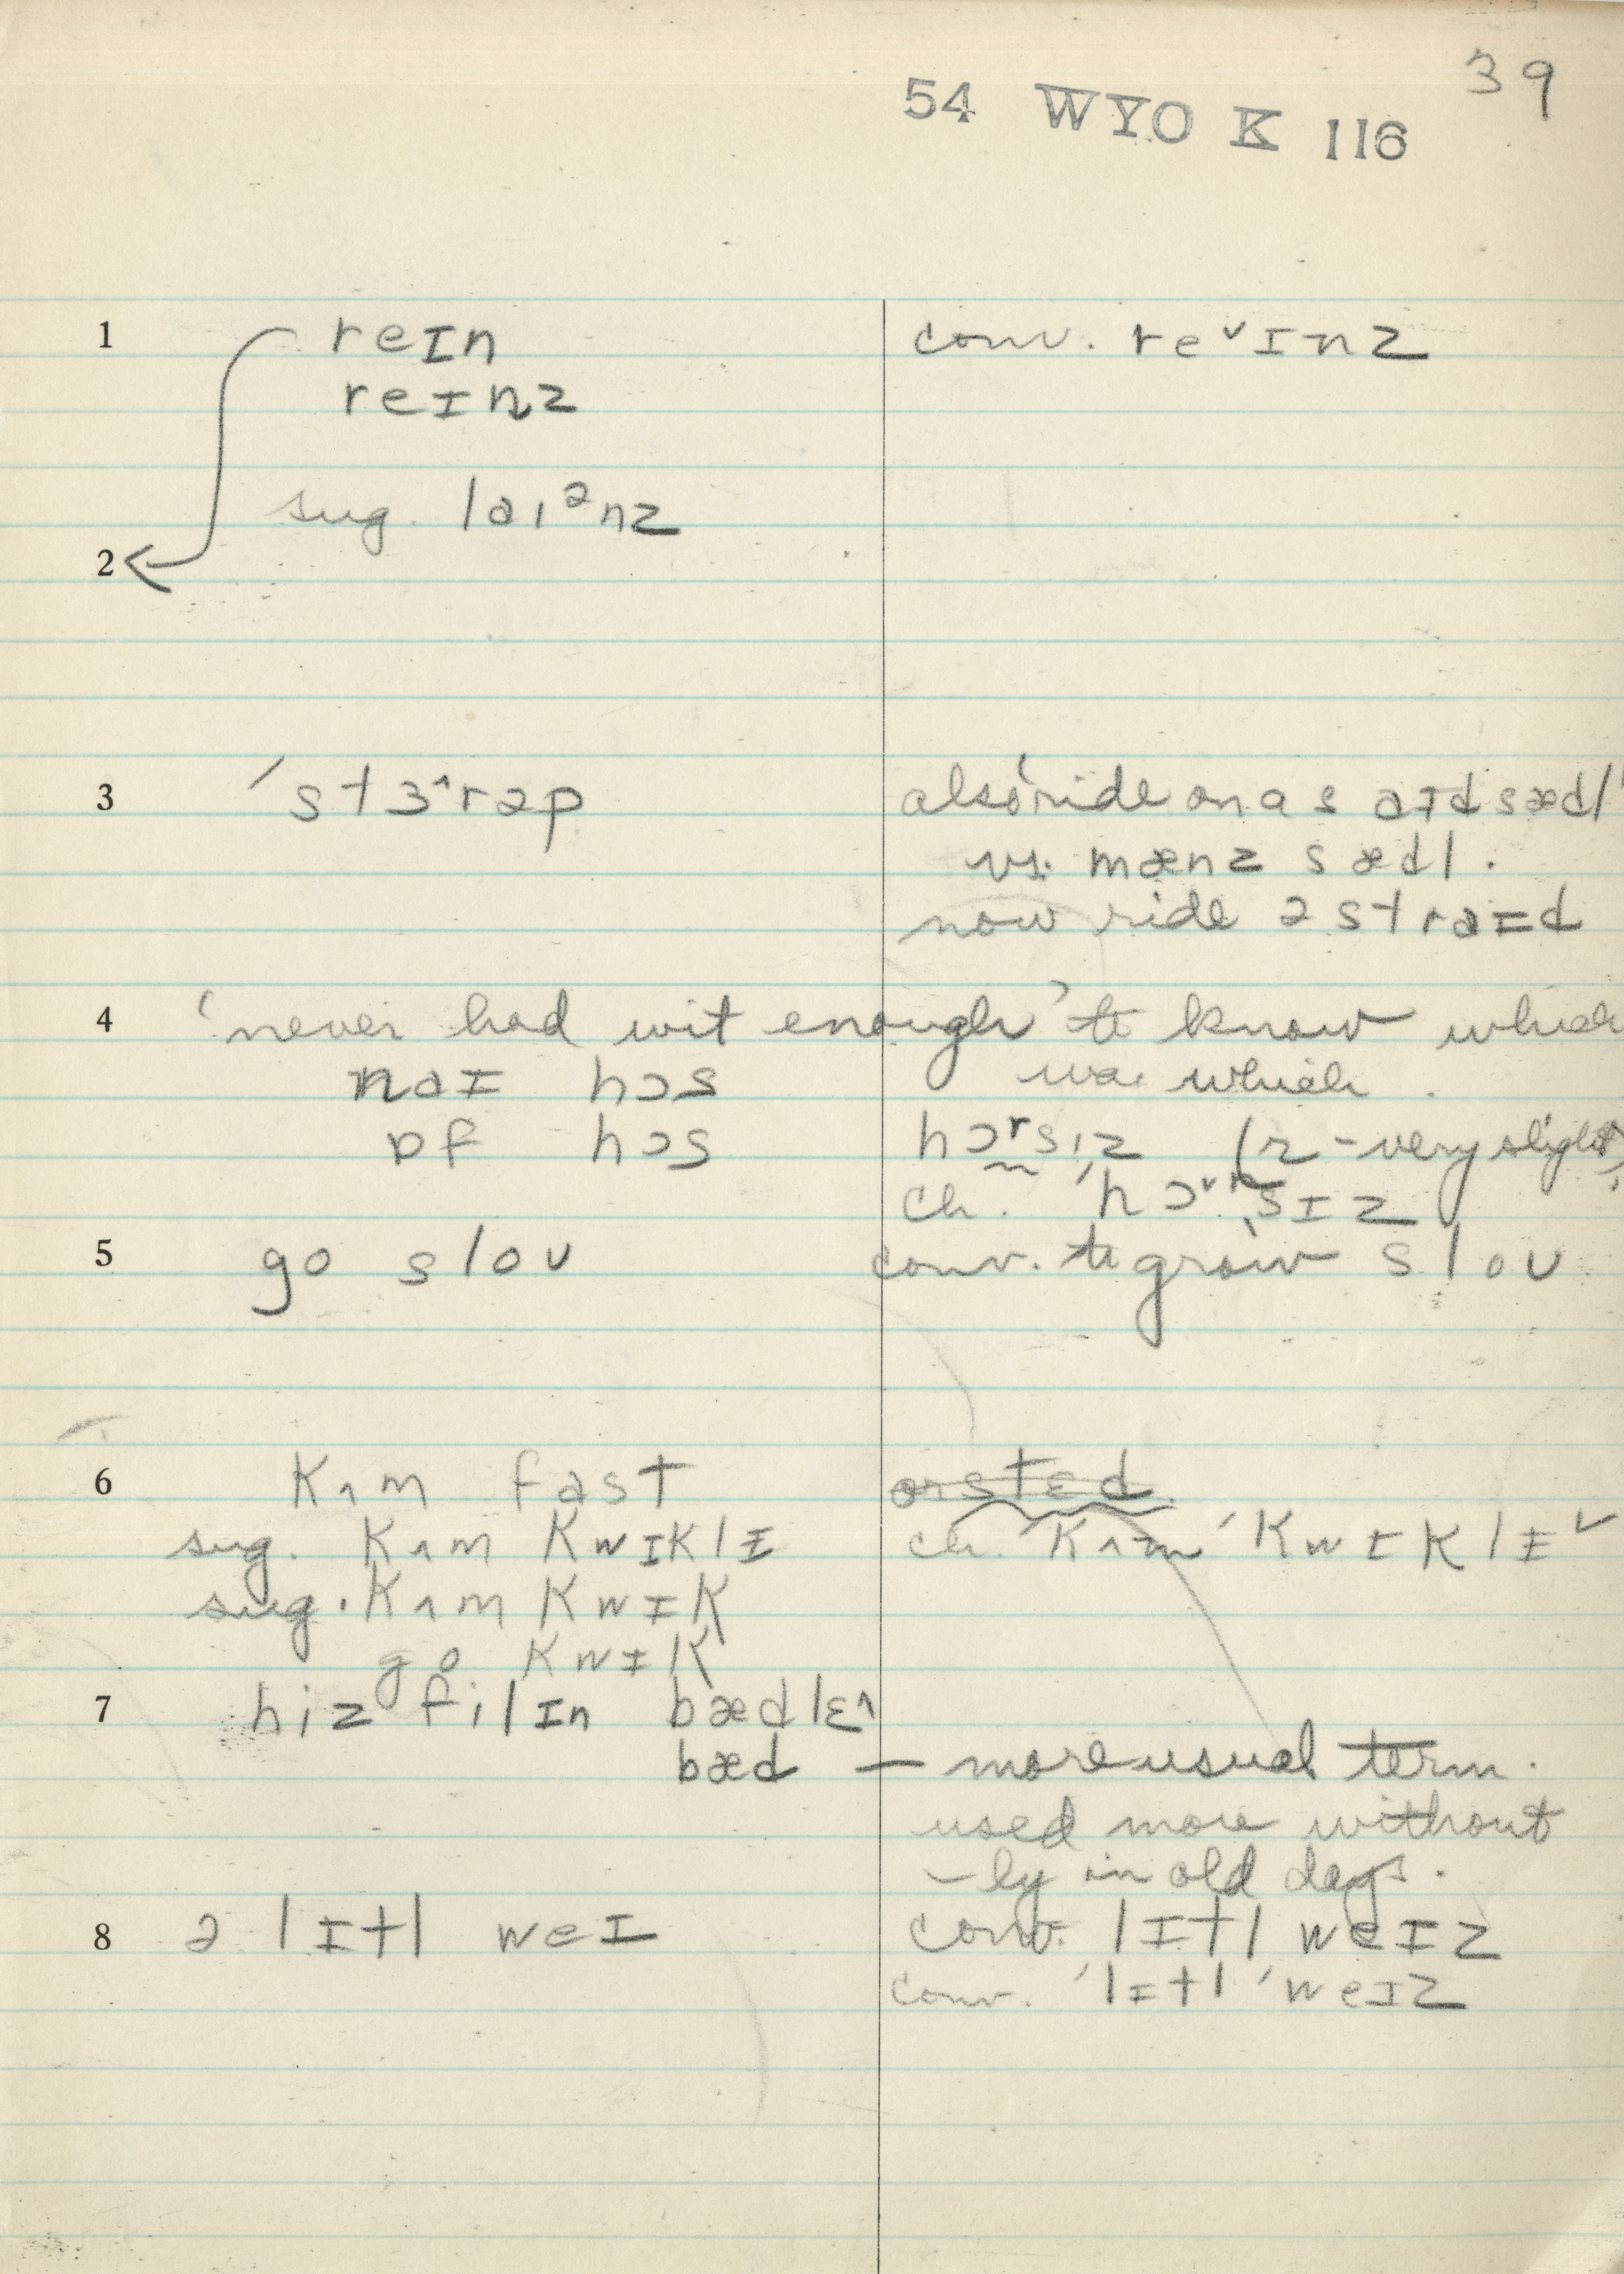 39
54 WYO K 116
1 reɪn conv. reˇɪnz
reɪnz
sug. laɪᵊnz
2
3 ˈstɜ^rəp also 'ride on a saɪdsædl'
vs. mænz sædl.
now ride əstraɪd
4 'never had wit enough' to know which
naɪ hɔs was which.
ɒf hɔs hɔʳsɪz (r - very slight)
ch. ˈhɔˇʳsɪz
5 go sloʊ conv. to grow sloʊ
6 kʌm fast or stɛd.
sug. kʌm kwɪklɪ ch. ˈkʌm ˈkwɪklɪˇ
sug. kʌm kwɪk
go kwɪk
7 hiz filɪn bædlɛ^
bæd — more usual term.
used more without
-ly in old days.
8 ə lɪtl weɪ conv. lɪtl weɪz
conv. ˈlɪtl ˈweɪz